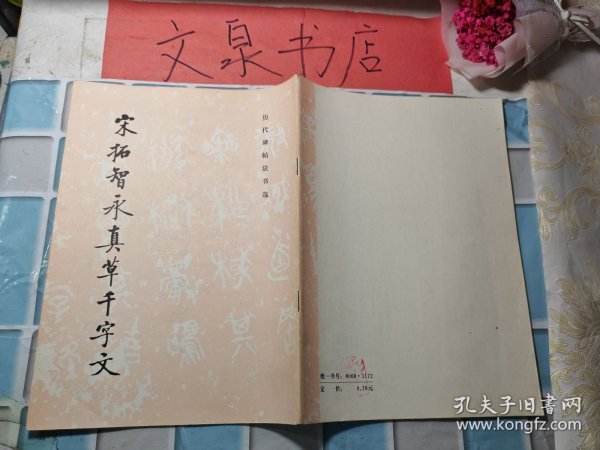 文泉书店
历代碑帖法书选
宋拓智永真草千字文
统一书号：8068·1172
定价：0.70元
孔夫子旧书网
www.kongfz.com